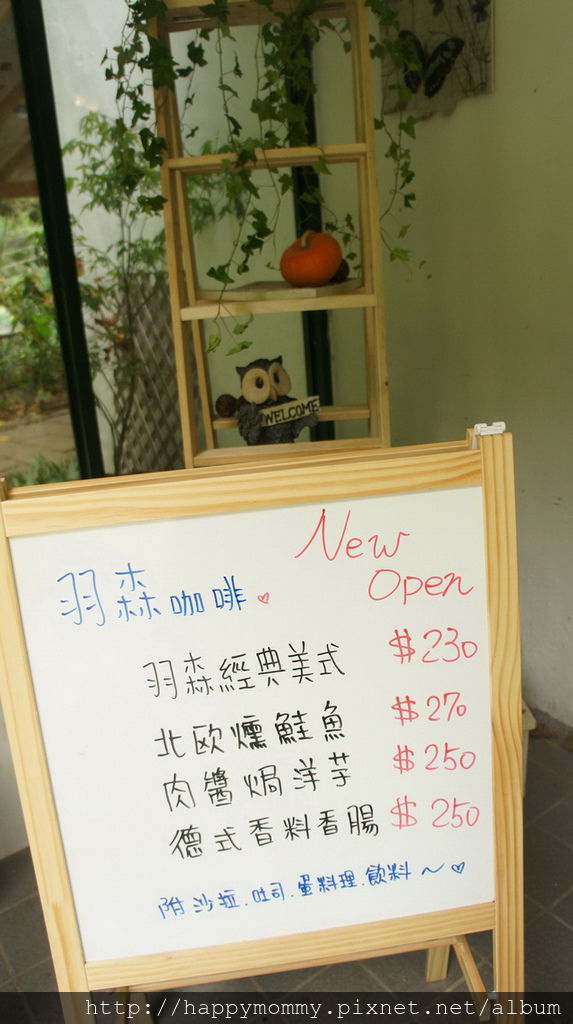 WELCOME
New
Open
羽森咖啡
羽森經典美式 $230
北歐燻鮭魚 $270
肉醬焗洋芋 $250
德式香料香腸 $250
附沙拉.吐司.蛋料理.飲料～
http://happymommy.pixnet.net/album